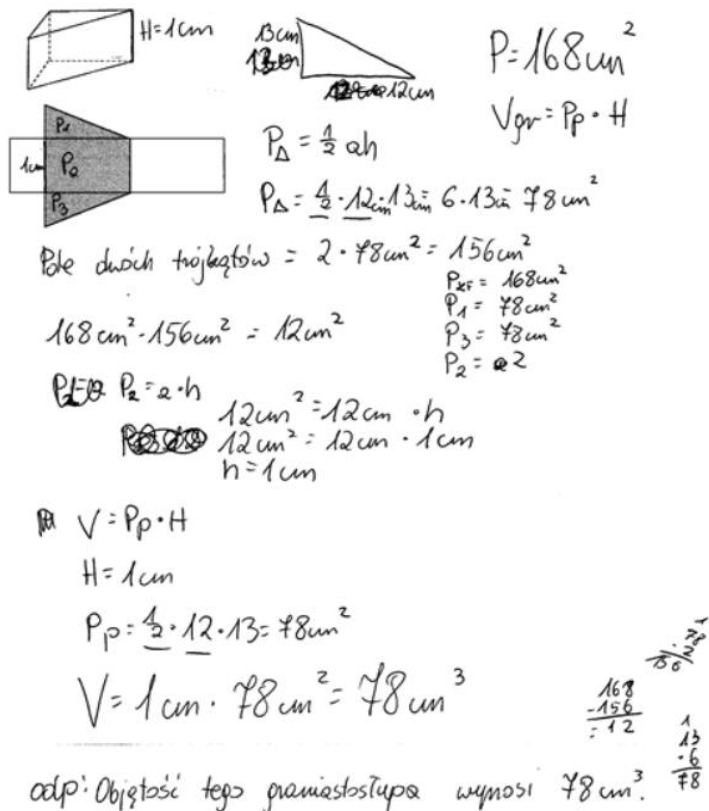 H=1cm
13cm
12cm
P=168cm²
Vgr=Pp·H
P1
1cm P2
P3
P△ = 1/2 ah
P△ = 1/2·12cm·13cm = 6·13cm = 78cm²
Pole dwóch trójkątów = 2·78cm² = 156cm²
168cm²-156cm² = 12cm²
P1= 78cm²
P3= 78cm²
P2= 2
P2=a·h
12cm²=12cm ·h
12cm²=12cm · 1cm
h=1cm
V=Pp·H
H=1cm
Pp=1/2·12·13=78cm²
V=1cm·78cm²=78cm³
78
·2
156
168
-156
=12
1
13
·6
78
odp: Objętość tego graniastosłupa wynosi 78cm³.